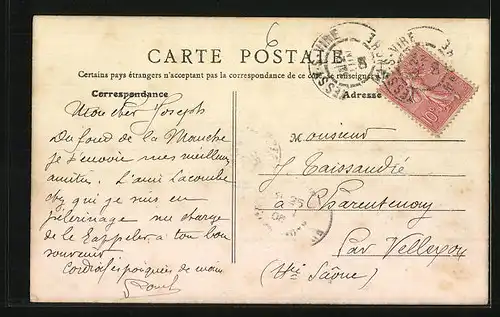 6
CARTE POSTALE
Certains pays étrangers n'acceptant pas la correspondance de ce côté, se renseigner
Correspondance
Adresse
Mon cher Joseph
Du fond de la Manche
je t'envoie mes meilleures
amitiés. L'ami Lacombe
chez qui je suis en
pèlerinage me charge
de le rappeler à ton bon
souvenir
Cordiales poignées de main
Monsieur
J. Taissandié
à Charentenay
Par Vellexon
(Hte Saône)
VESSEY-VIRE
10